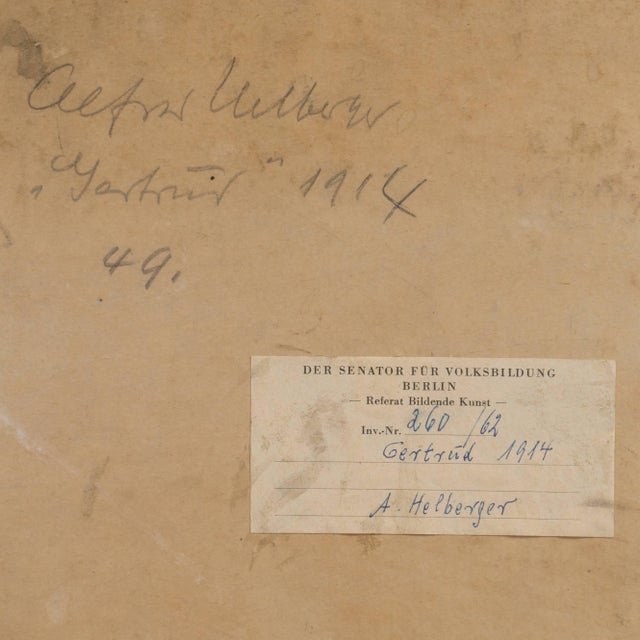 Alfred Helberger
„Gertrud" 1914
49.
DER SENATOR FÜR VOLKSBILDUNG
BERLIN
— Referat Bildende Kunst —
Inv.-Nr. 260/62
Gertrud 1914
A. Helberger